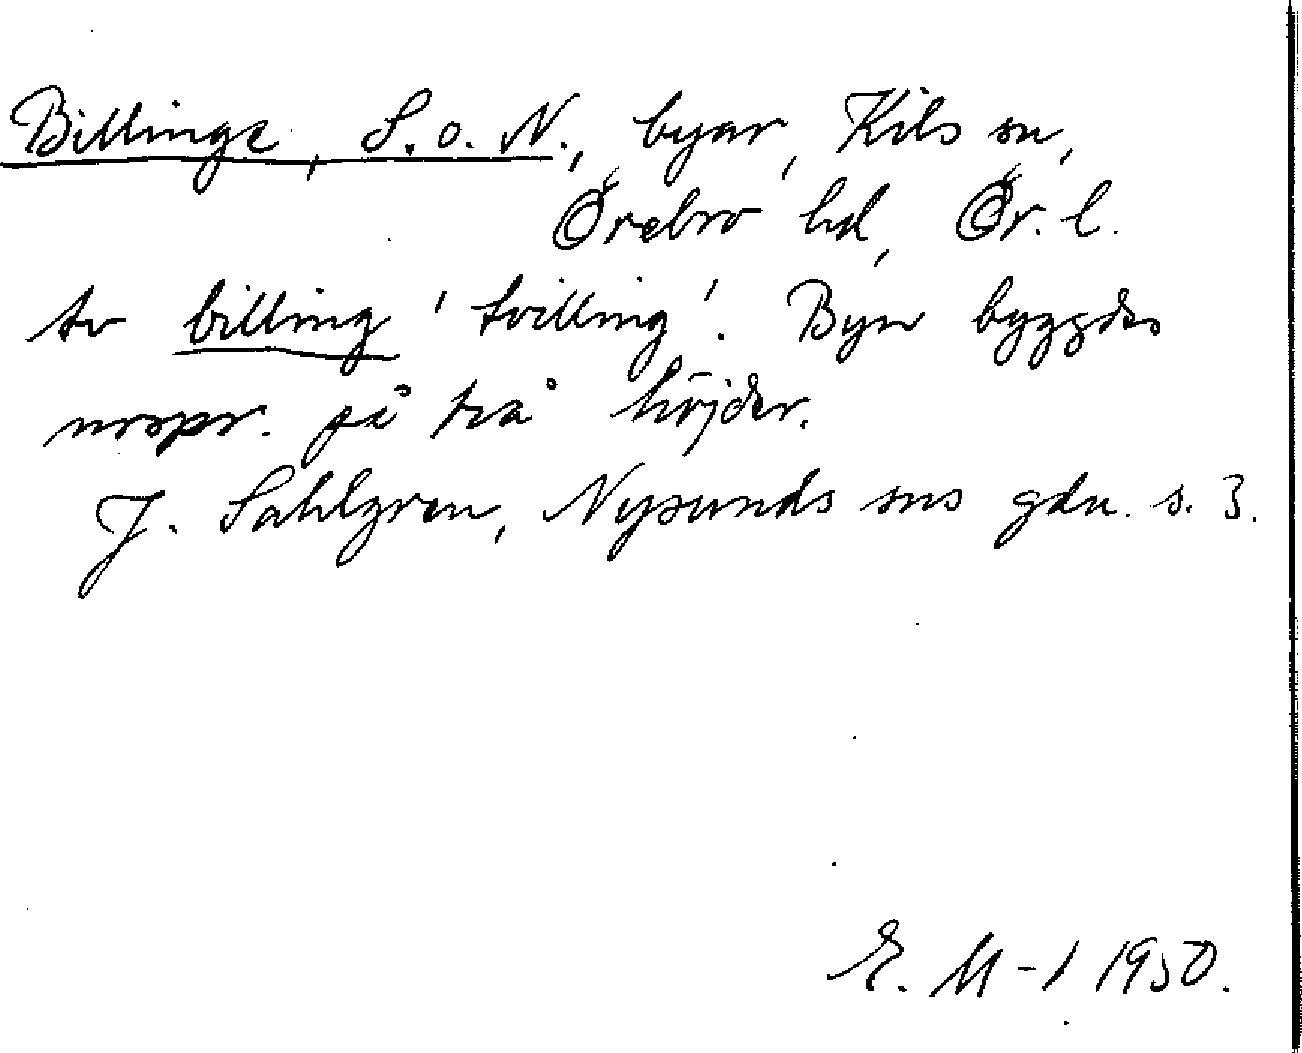 Billinge, S. o. N., byar, Kils sn,
Örebro hd, Ör. l.
Av billing 'tvilling'. Byn byggdes
urspr. på två höjder.
J. Sahlgren, Nysunds sns gdn. s. 3.
E. M-l 1950.